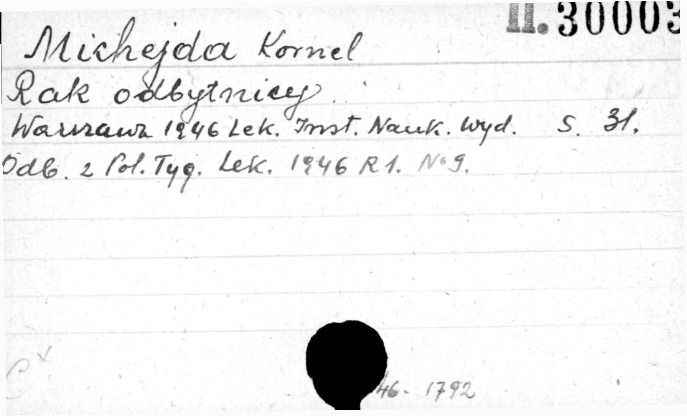 II. 30003
Michejda Kornel
Rak odbytnicy.
Warszawa 1946 Lek. Inst. Nauk. Wyd. S. 31.
Odb. z Pol. Tyg. Lek. 1946 R 1. No 9.
46 - 1792